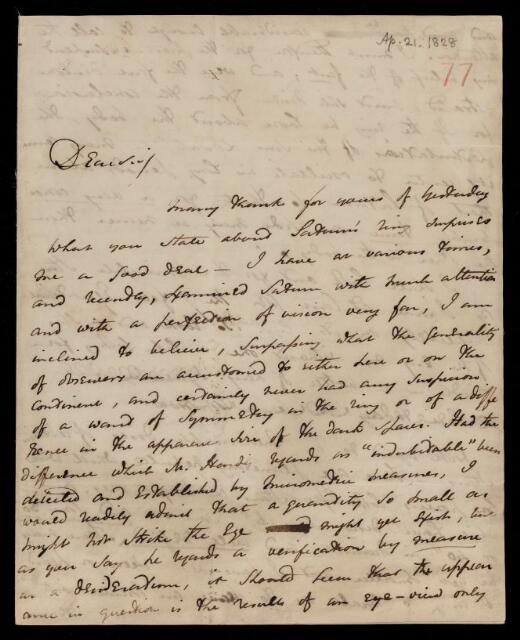 Ap. 21. 1828
77
Dear Sir/
Many thanks for yours of yesterday
What you state about Saturn's ring surprises
me a good deal — I have at various times,
and recently, examined Saturn with much attention
and with a perfection of vision very far, I am
inclined to believe, surpassing what the generality
of observers are accustomed to either here or on the
continent, and certainly never had any suspicion
of a want of Symmetry in the ring or of a diffe
rence in the apparent size of the dark spaces. Had the
difference which M. Harding regards as "indubitable" been
detected and established by micrometric measures, I
would readily admit that a quantity so small as
might not strike the Eye might yet exist, but
as you say he regards a verification by measure
as a desideratum, it should seem that the appear
ance in question is the results of an eye-view only